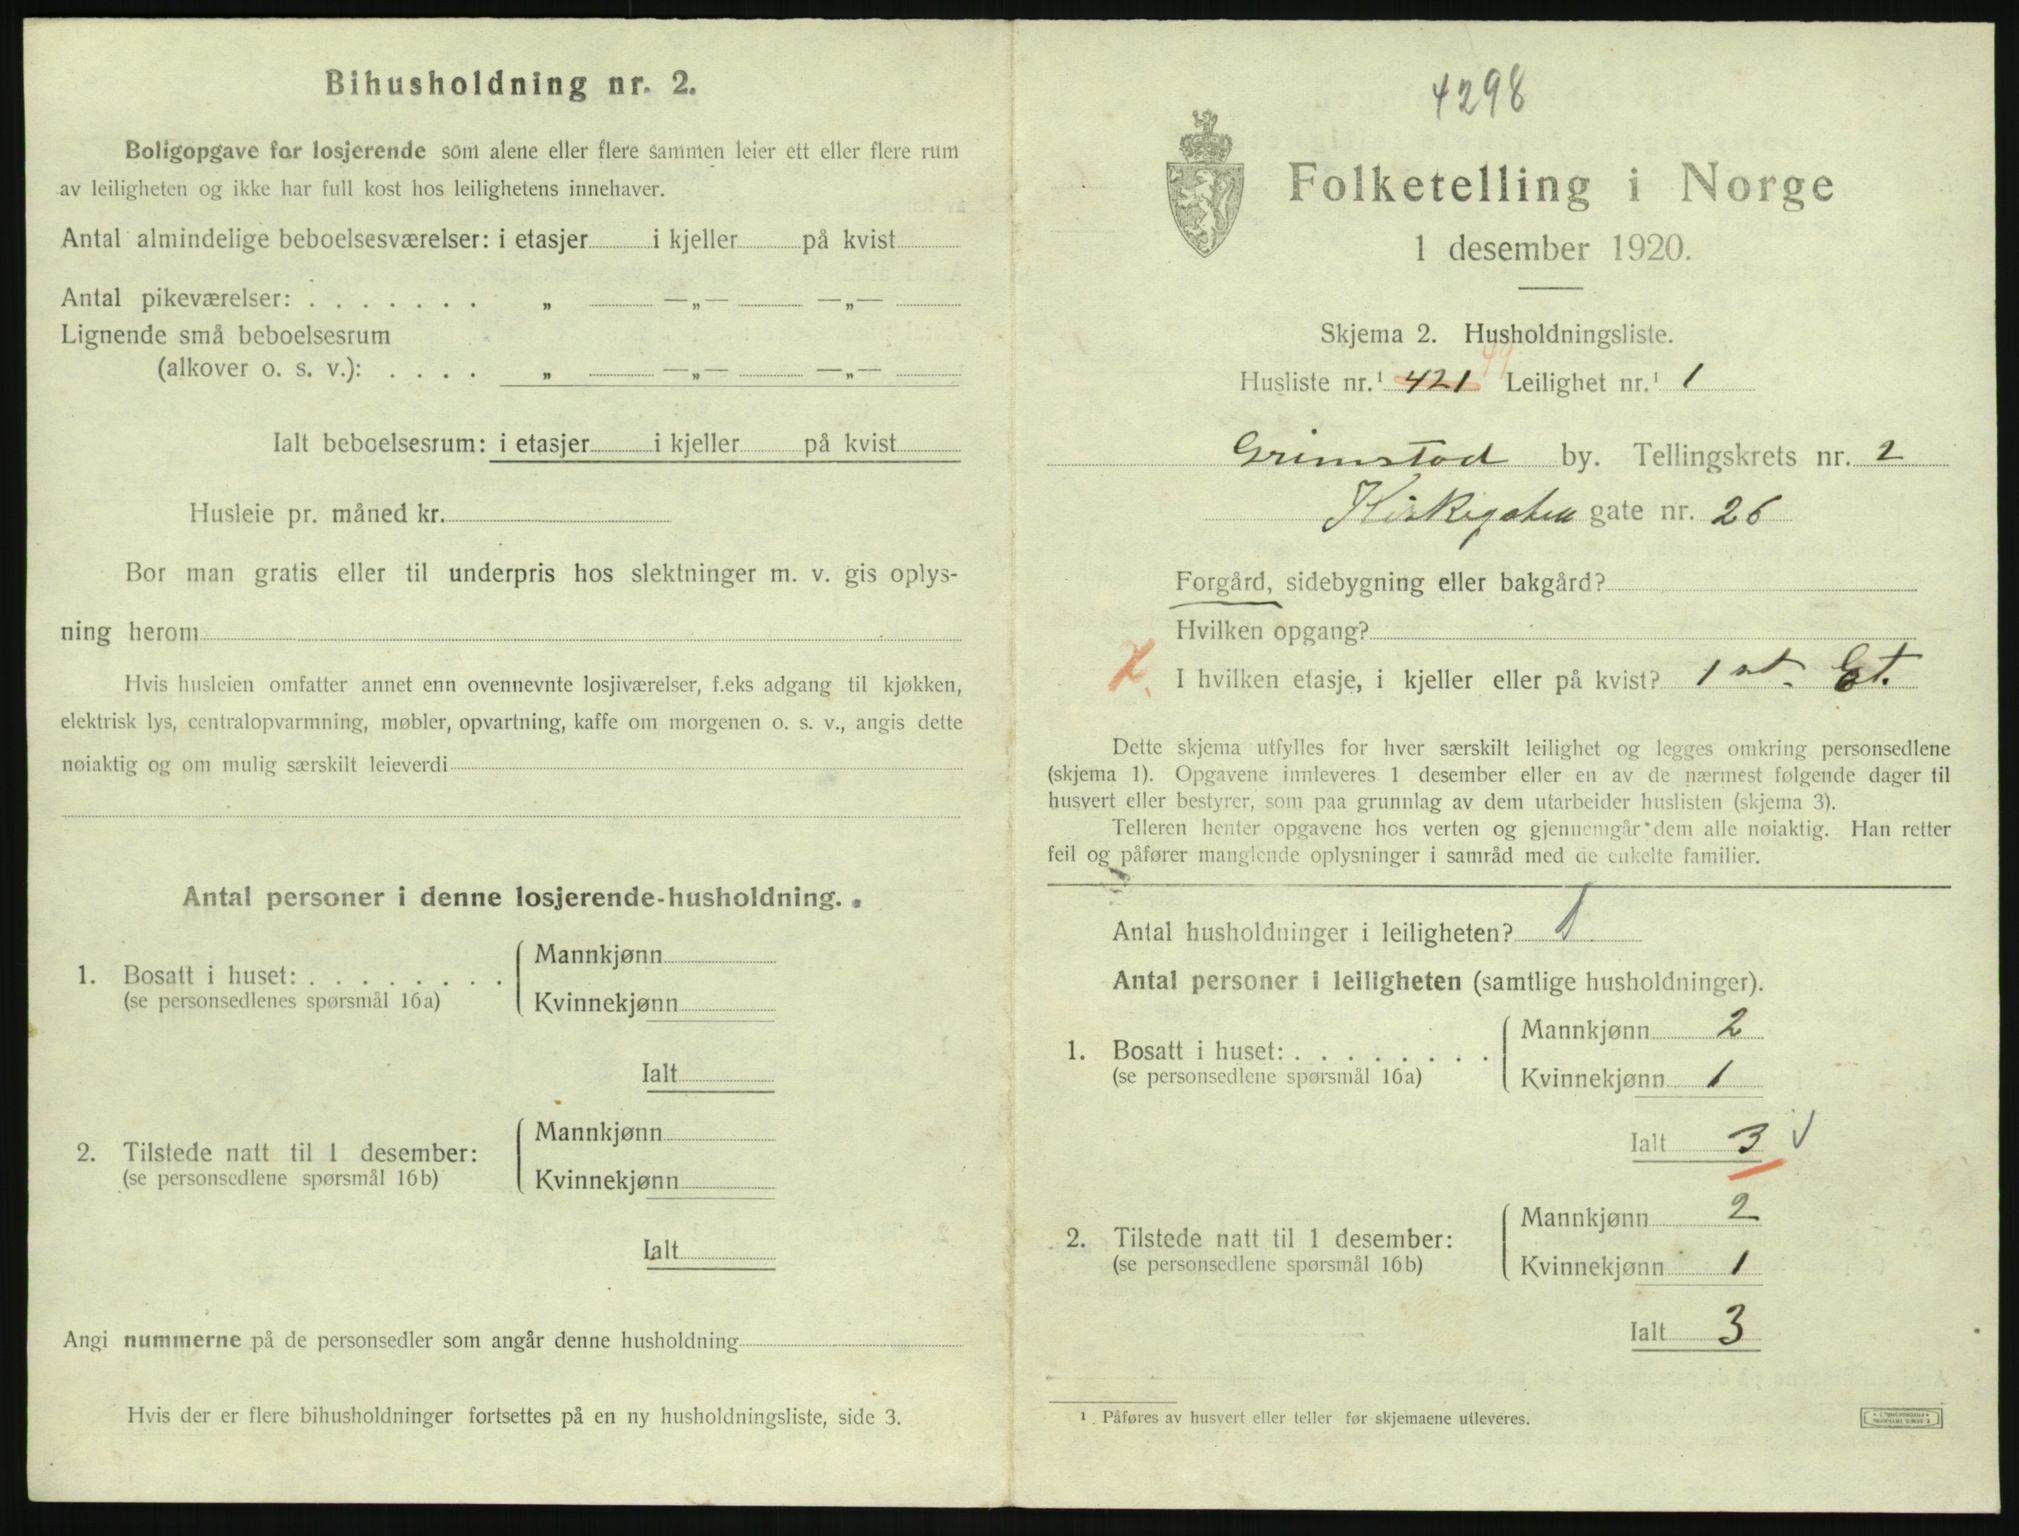 Bihusholdning nr. 2.
Boligopgave for losjerende som alene eller flere sammen leier ett eller flere rum
av leiligheten og ikke har full kost hos leilighetens innehaver.
Antal almindelige beboelsesværelser: i etasjer i kjeller på kvist
Antal pikeværelser: . . . . . . . „ —„— —„—
Lignende små beboelsesrum
(alkover o. s. v.): . . . . „ —„— —„—
Ialt beboelsesrum: i etasjer i kjeller på kvist
Husleie pr. måned kr.
Bor man gratis eller til underpris hos slektninger m. v. gis oplys-
ning herom
Hvis husleien omfatter annet enn ovennevnte losjiværelser, f.eks adgang til kjøkken,
elektrisk lys, centralopvarmning, møbler, opvartning, kaffe om morgenen o. s. v., angis dette
nøiaktig og om mulig særskilt leieverdi
Antal personer i denne losjerende-husholdning.
1. Bosatt i huset: . . . . . . . .
(se personsedlenes spørsmål 16a)
Mannkjønn
Kvinnekjønn
Ialt
2. Tilstede natt til 1 desember:
(se personsedlene spørsmål 16b)
Mannkjønn
Kvinnekjønn
Ialt
Angi nummerne på de personsedler som angår denne husholdning
Hvis der er flere bihusholdninger fortsettes på en ny husholdningsliste, side 3.
4298
Folketelling i Norge
1 desember 1920.
Skjema 2. Husholdningsliste.
49
Husliste nr.¹ 421 Leilighet nr.¹ 1
Grimstad by. Tellingskrets nr. 2
Kirkegaten gate nr. 26
Forgård, sidebygning eller bakgård?
Hvilken opgang?
I hvilken etasje, i kjeller eller på kvist? 1 st. Et.
Dette skjema utfylles for hver særskilt leilighet og legges omkring personsedlene
(skjema 1). Opgavene innleveres 1 desember eller en av de nærmest følgende dager til
husvert eller bestyrer, som paa grunnlag av dem utarbeider huslisten (skjema 3).
Telleren henter opgavene hos verten og gjennemgår dem alle nøiaktig. Han retter
feil og påfører manglende oplysninger i samråd med de enkelte familier.
Antal husholdninger i leiligheten? 1
Antal personer i leiligheten (samtlige husholdninger).
1. Bosatt i huset: . . . . . . . .
(se personsedlene spørsmål 16a)
Mannkjønn 2
Kvinnekjønn 1
Ialt 3
2. Tilstede natt til 1 desember:
(se personsedlene spørsmål 16b)
Mannkjønn 2
Kvinnekjønn 1
Ialt 3
¹ Påføres av husvert eller teller før skjemaene utleveres.